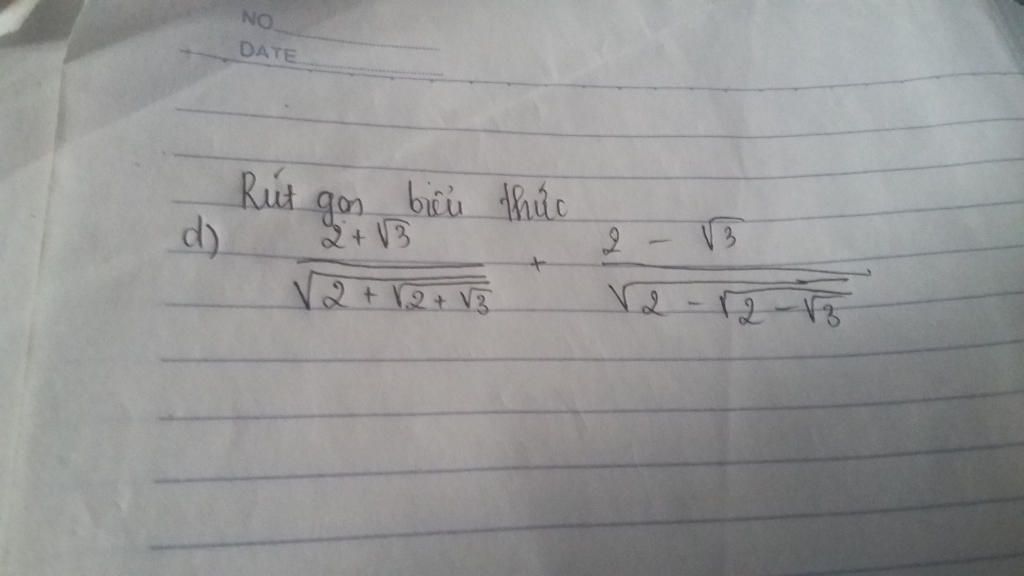 NO
DATE
Rút gọn biểu thức
d) \frac{2+\sqrt{3}}{\sqrt{2+\sqrt{2+\sqrt{3}}}} + \frac{2-\sqrt{3}}{\sqrt{2-\sqrt{2-\sqrt{3}}}}